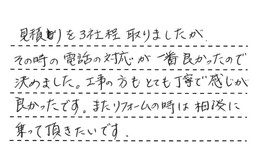 見積りを3社程取りましたが、
その時の電話の対応が一番良かったので
決めました。工事の方もとても丁寧で感じが
良かったです。またリフォームの時は相談に
乗って頂きたいです。